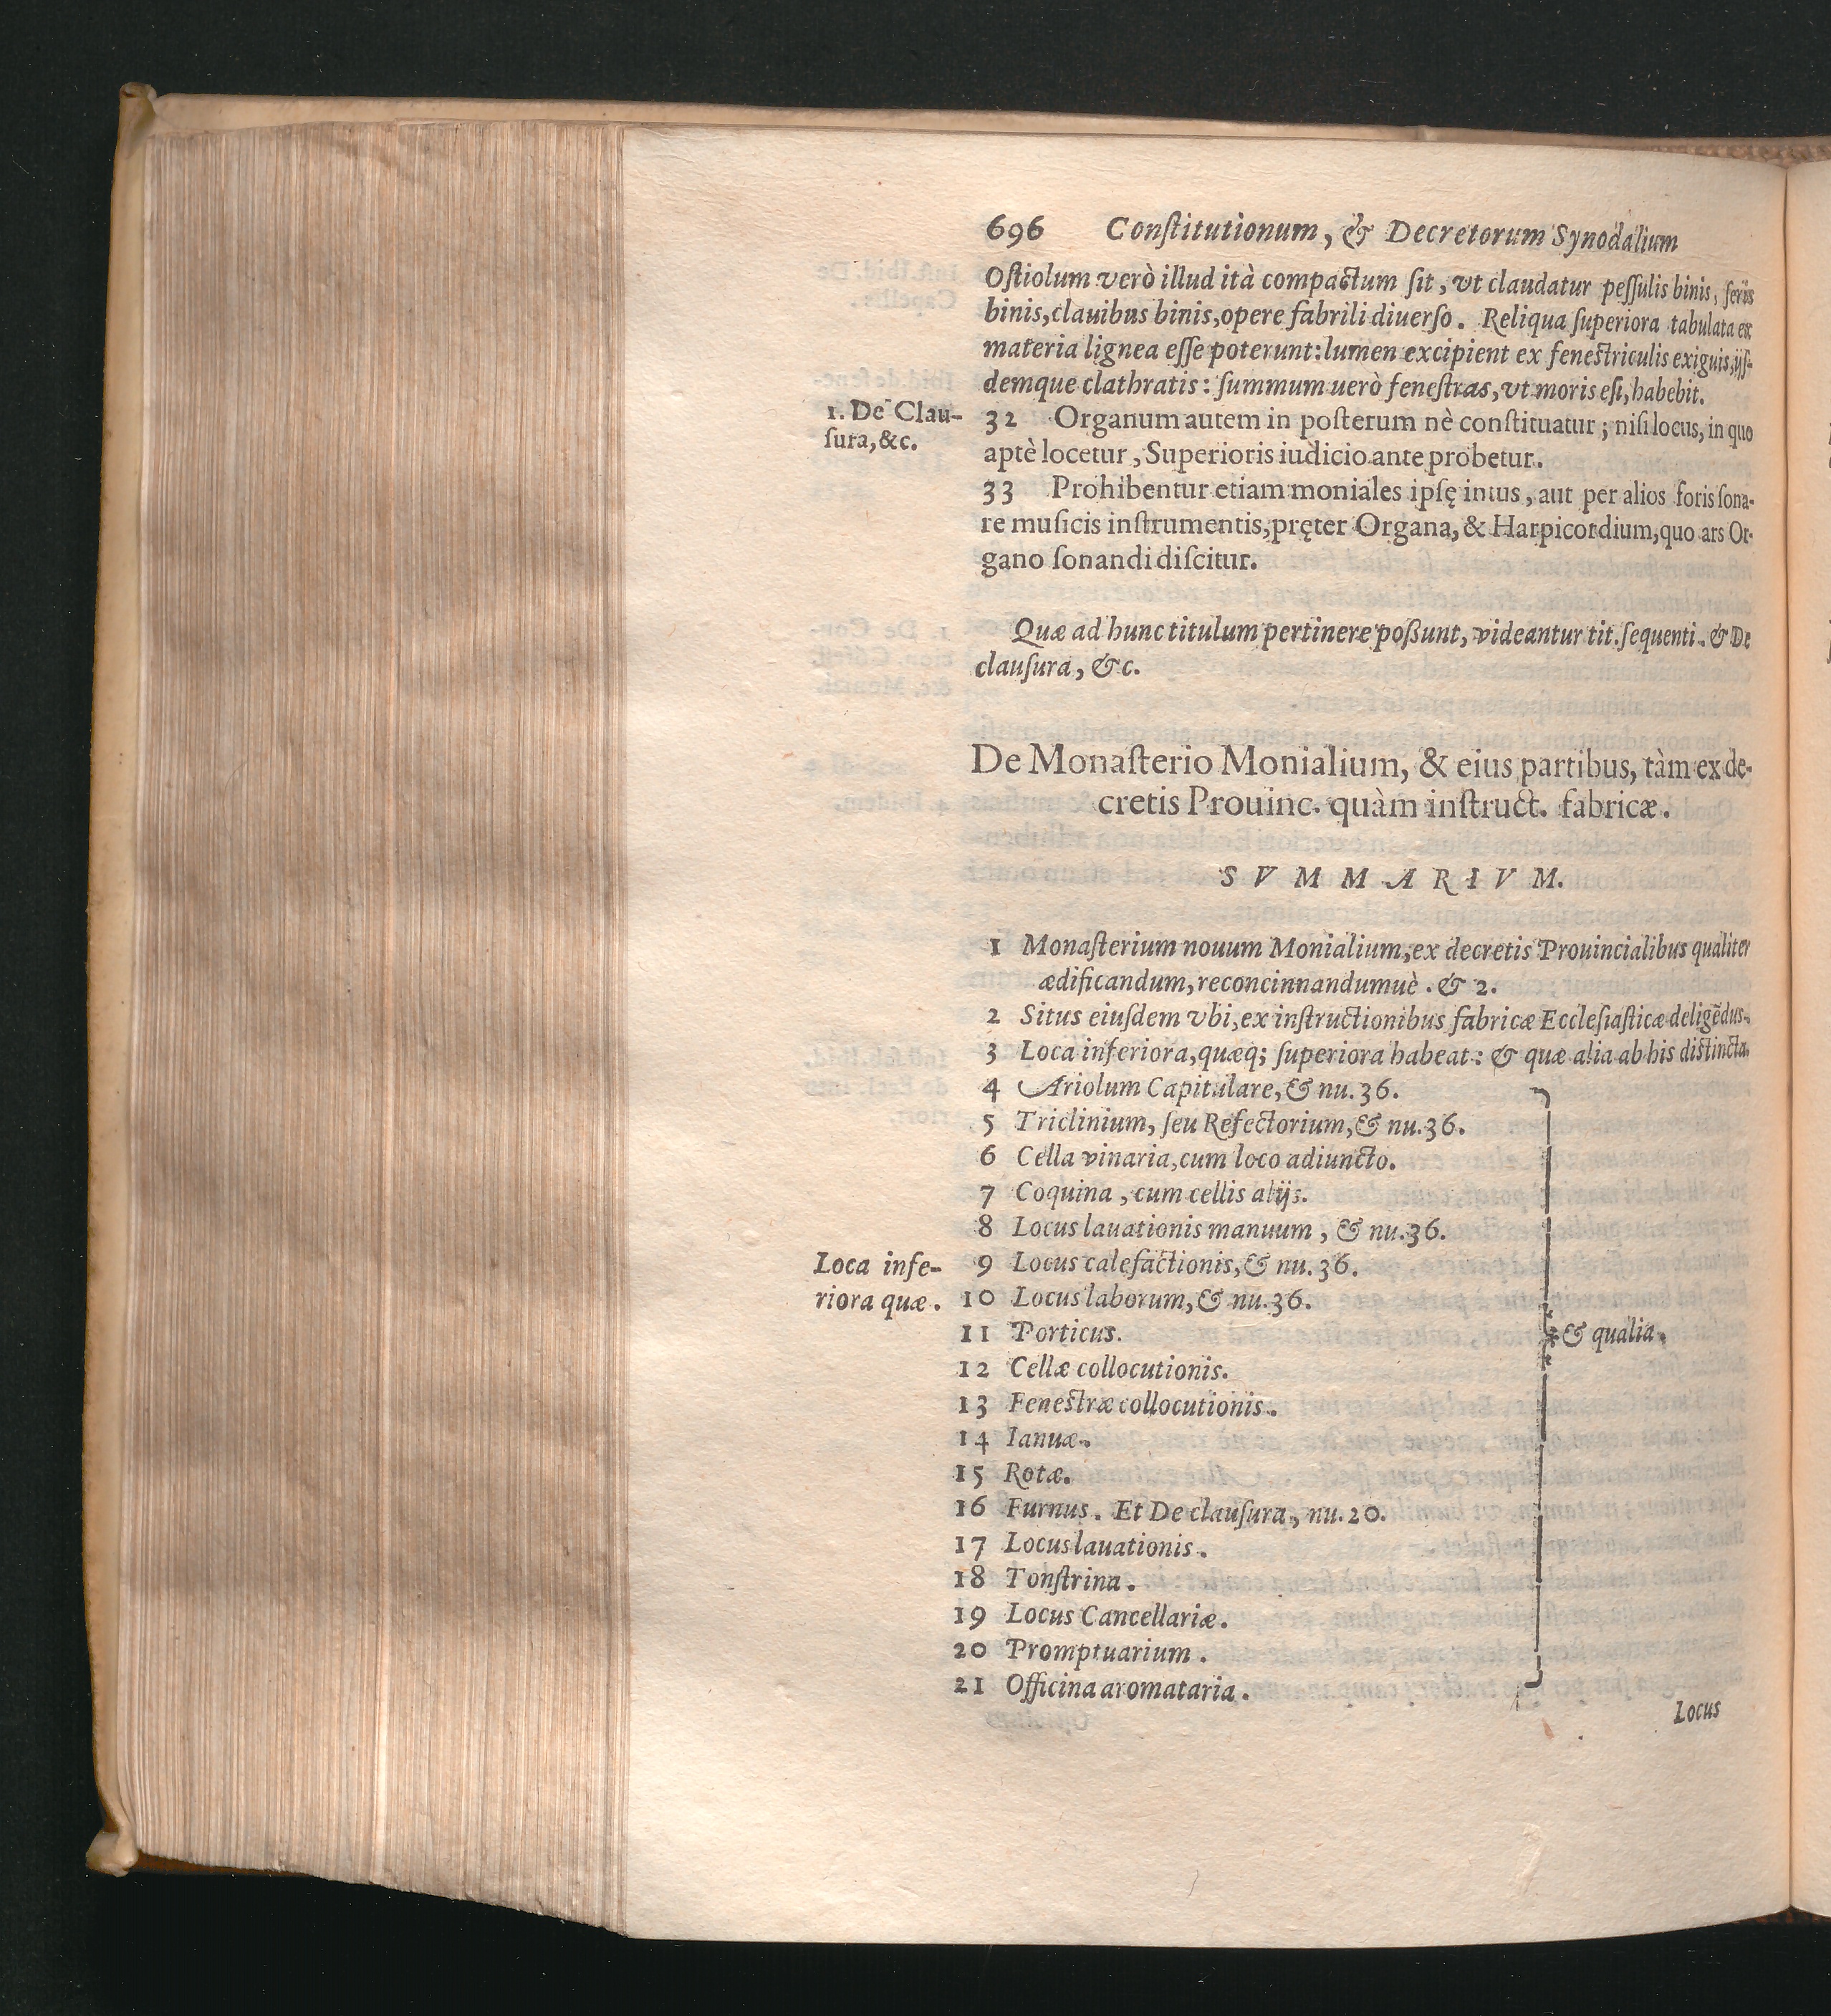 696 Conſtitutionum, & Decretorum Synodalium
Oſtiolum verò illud ità compactum ſit, vt claudatur peſſulis binis, ſeris
binis, clauibus binis, opere fabrili diuerſo. Reliqua ſuperiora tabulata ex
materia lignea eſſe poterunt: lumen excipient ex feneſtriculis exiguis, ijſ-
demque clathratis: ſummum uerò feneſtras, vt moris eſt, habebit.
1. De Clau-
ſura, &c.
32 Organum autem in poſterum nè conſtituatur; niſi locus, in quo
aptè locetur, Superioris iudicio ante probetur.
33 Prohibentur etiam moniales ipſę intus, aut per alios foris ſona-
re muſicis inſtrumentis, pręter Organa, & Harpicordium, quo ars Or-
gano ſonandi diſcitur.
Quæ ad hunc titulum pertinere poßunt, videantur tit. ſequenti. & De
clauſura, &c.
De Monaſterio Monialium, & eius partibus, tàm ex de-
cretis Prouinc. quàm inſtruct. fabricæ.
SVMMARIVM.
1 Monaſterium nouum Monialium, ex decretis Prouincialibus qualiter
ædificandum, reconcinnandumuè. & 2.
2 Situs eiuſdem vbi, ex inſtructionibus fabricæ Eccleſiaſticæ deligẽdus.
3 Loca inferiora, quæq; ſuperiora habeat: & quæ alia ab his diſtincta.
4 Ariolum Capitulare, & nu. 36.
5 Triclinium, ſeu Refectorium, & nu. 36.
6 Cella vinaria, cum loco adiuncto.
7 Coquina, cum cellis alijs.
8 Locus lauationis manuum, & nu. 36.
Loca infe-
riora quæ.
9 Locus calefactionis, & nu. 36.
10 Locus laborum, & nu. 36.
11 Porticus.
& qualia.
12 Cellæ collocutionis.
13 Feneſtræ collocutionis.
14 Ianuæ.
15 Rotæ.
16 Furnus. Et De clauſura, nu. 20.
17 Locus lauationis.
18 Tonſtrina.
19 Locus Cancellariæ.
20 Promptuarium.
21 Officina aromataria.
Locus